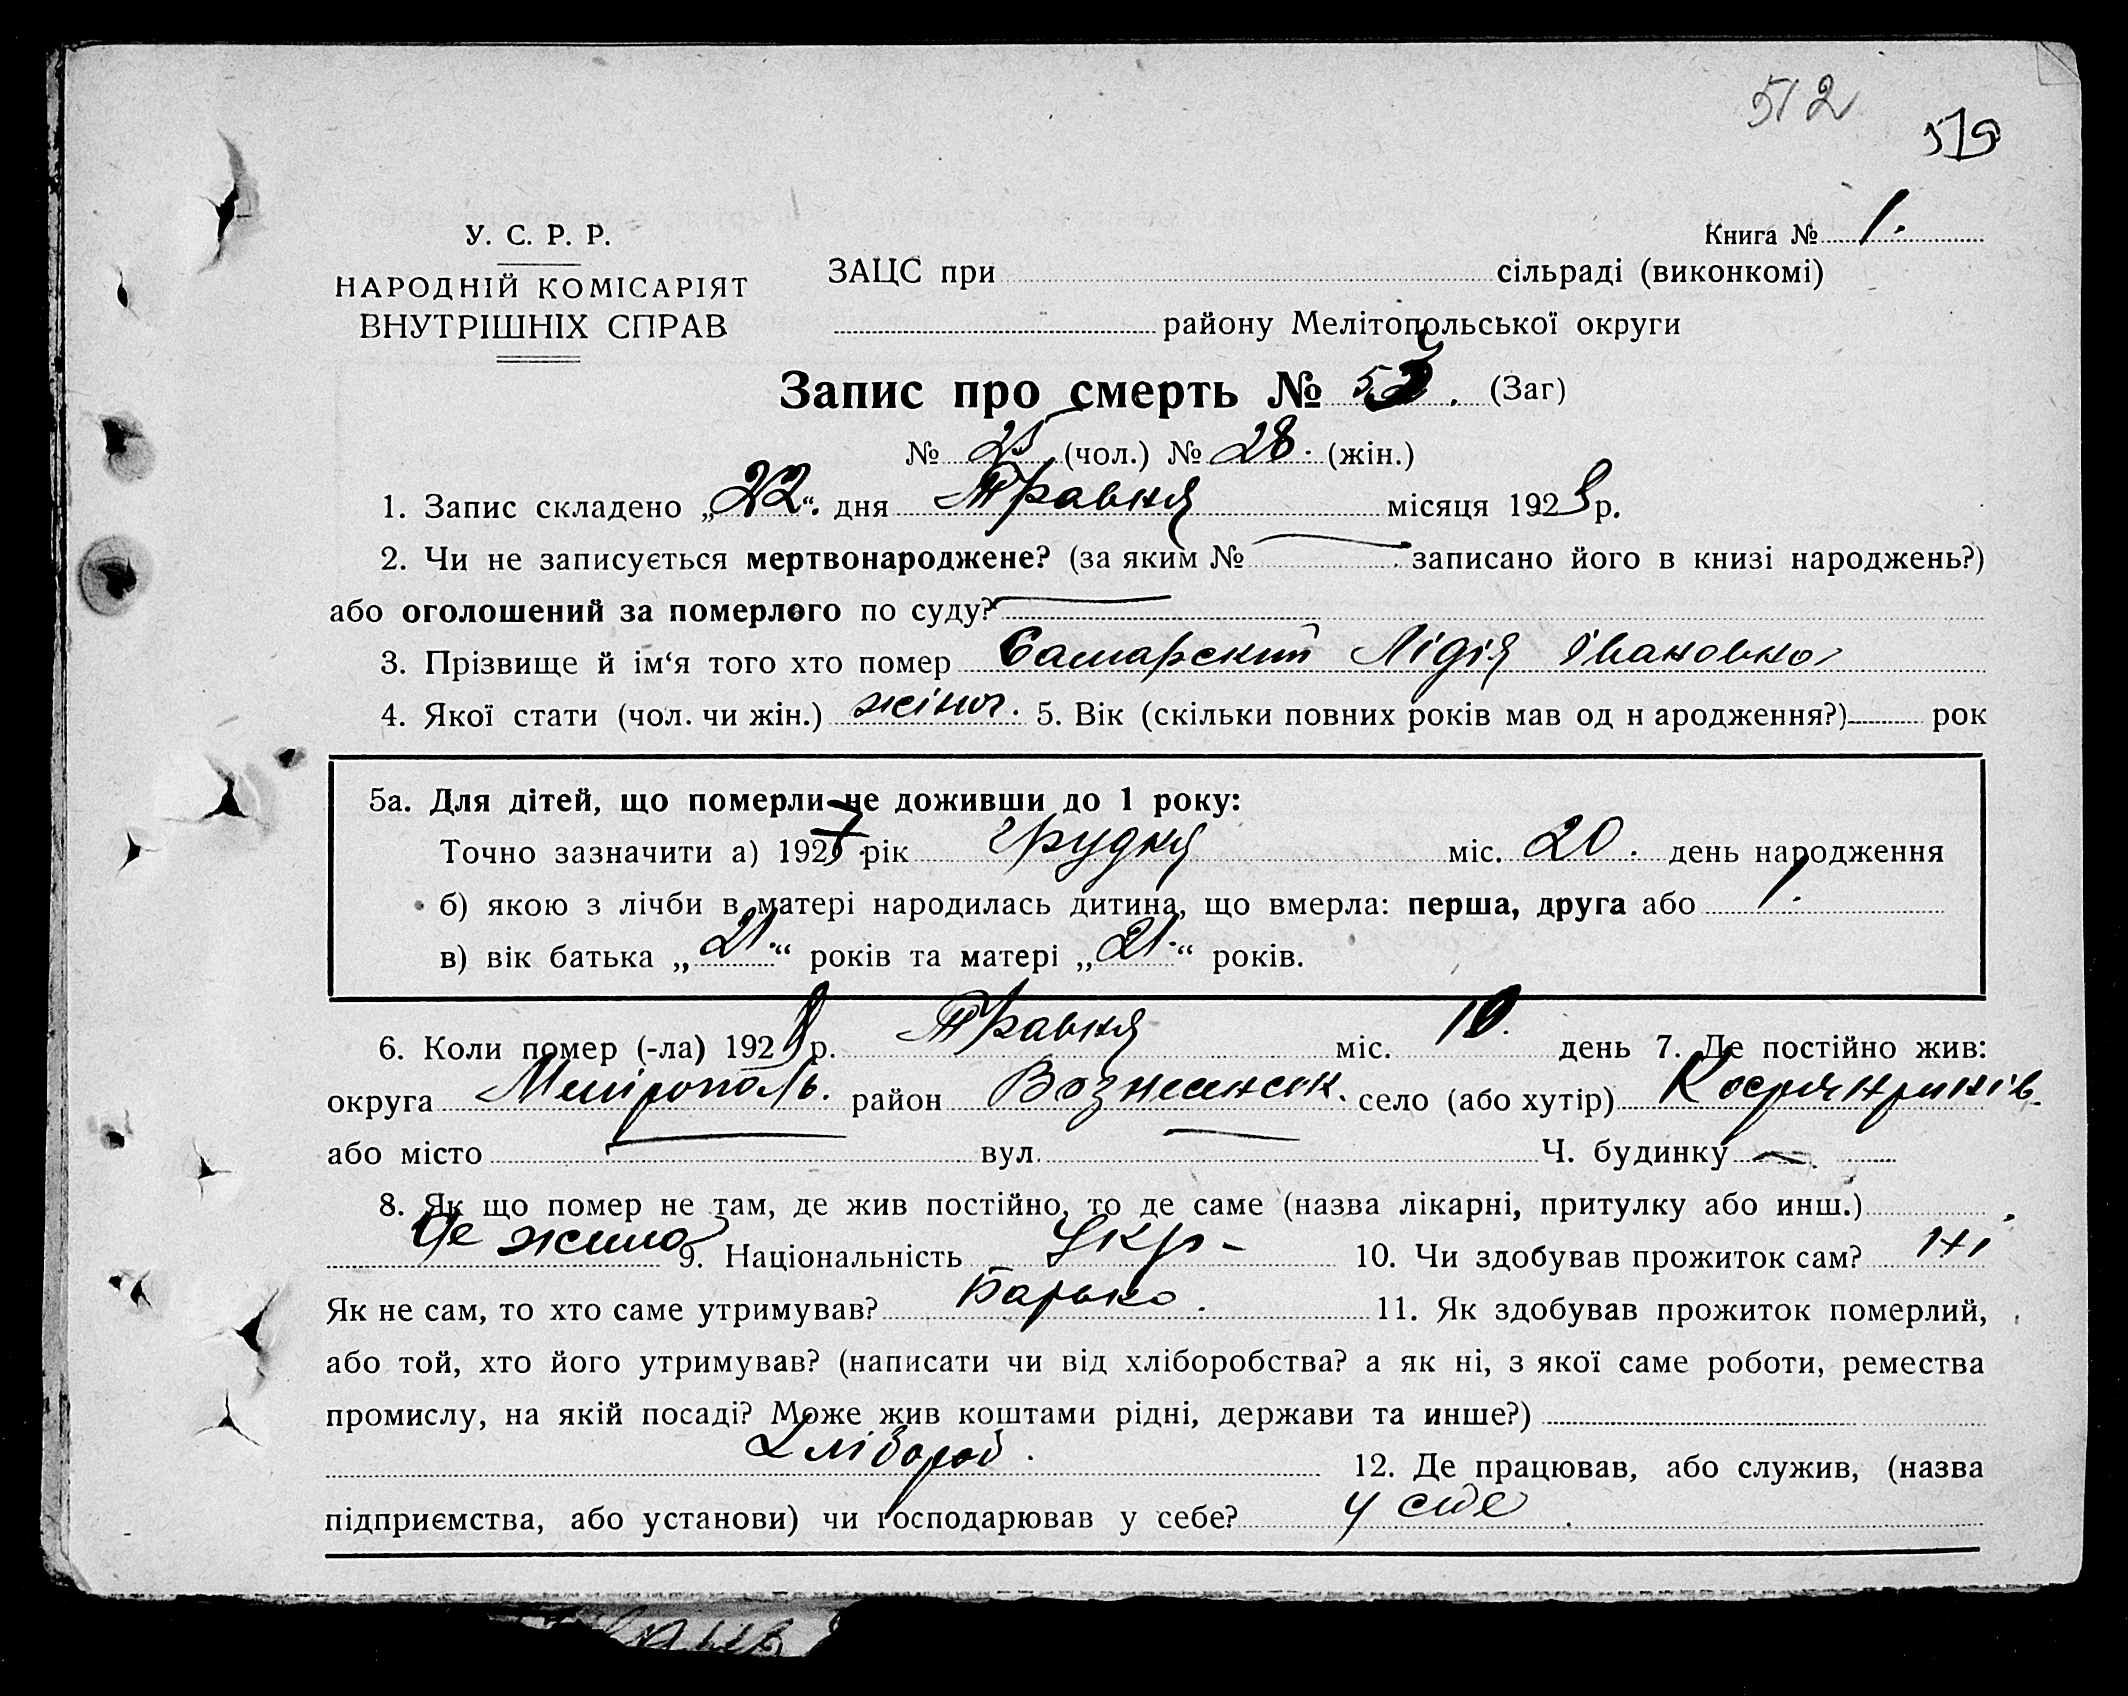 512
519
У. С. Р. Р.
НАРОДНІЙ КОМІСАРІЯТ
ВНУТРІШНІХ СПРАВ
Книга № 1.
ЗАЦС при сільраді (виконкомі)
району Мелітопольської округи
Запис про смерть № 53. (Заг)
№ 25 (чол.) № 28. (жін.)
1. Запис складено „22“. дня Травня місяця 1928 р.
2. Чи не записується мертвонароджене? (за яким № — записано його в книзі народжень?)
або оголошений за померлого по суду? —
3. Прізвище й ім‘я того хто помер Самарский Лідія Івановна
4. Якої стати (чол. чи жін.) жіноч. 5. Вік (скільки повних років мав од н ародження?) рок
5а. Для дітей, що померли не доживши до 1 року:
Точно зазначити а) 1927 рік Грудня міс. 20. день народження
б) якою з лічби в матері народилась дитина, що вмерла: перша, друга або 1.
в) вік батька „21.“ років та матері „21.“ років.
6. Коли помер (-ла) 1928 р. Травня міс. 10. день 7. Де постійно жив:
округа Мелітополь. район Вознесенськ. село (або хутір)
або місто — вул. — Ч. будинку —.
8. Як що помер не там, де жив постійно, то де саме (назва лікарні, притулку або инш.)
де жила 9. Національність Укр- 10. Чи здобував прожиток сам? Ні
Як не сам, то хто саме утримував? Батько. 11. Як здобував прожиток померлий,
або той, хто його утримував? (написати чи від хліборобства? а як ні, з якої саме роботи, ремества
промислу, на якій посаді? Може жив коштами рідні, держави та инше?)
Хлібороб. 12. Де працював, або служив, (назва
підприємства, або установи) чи господарював у себе? у себе